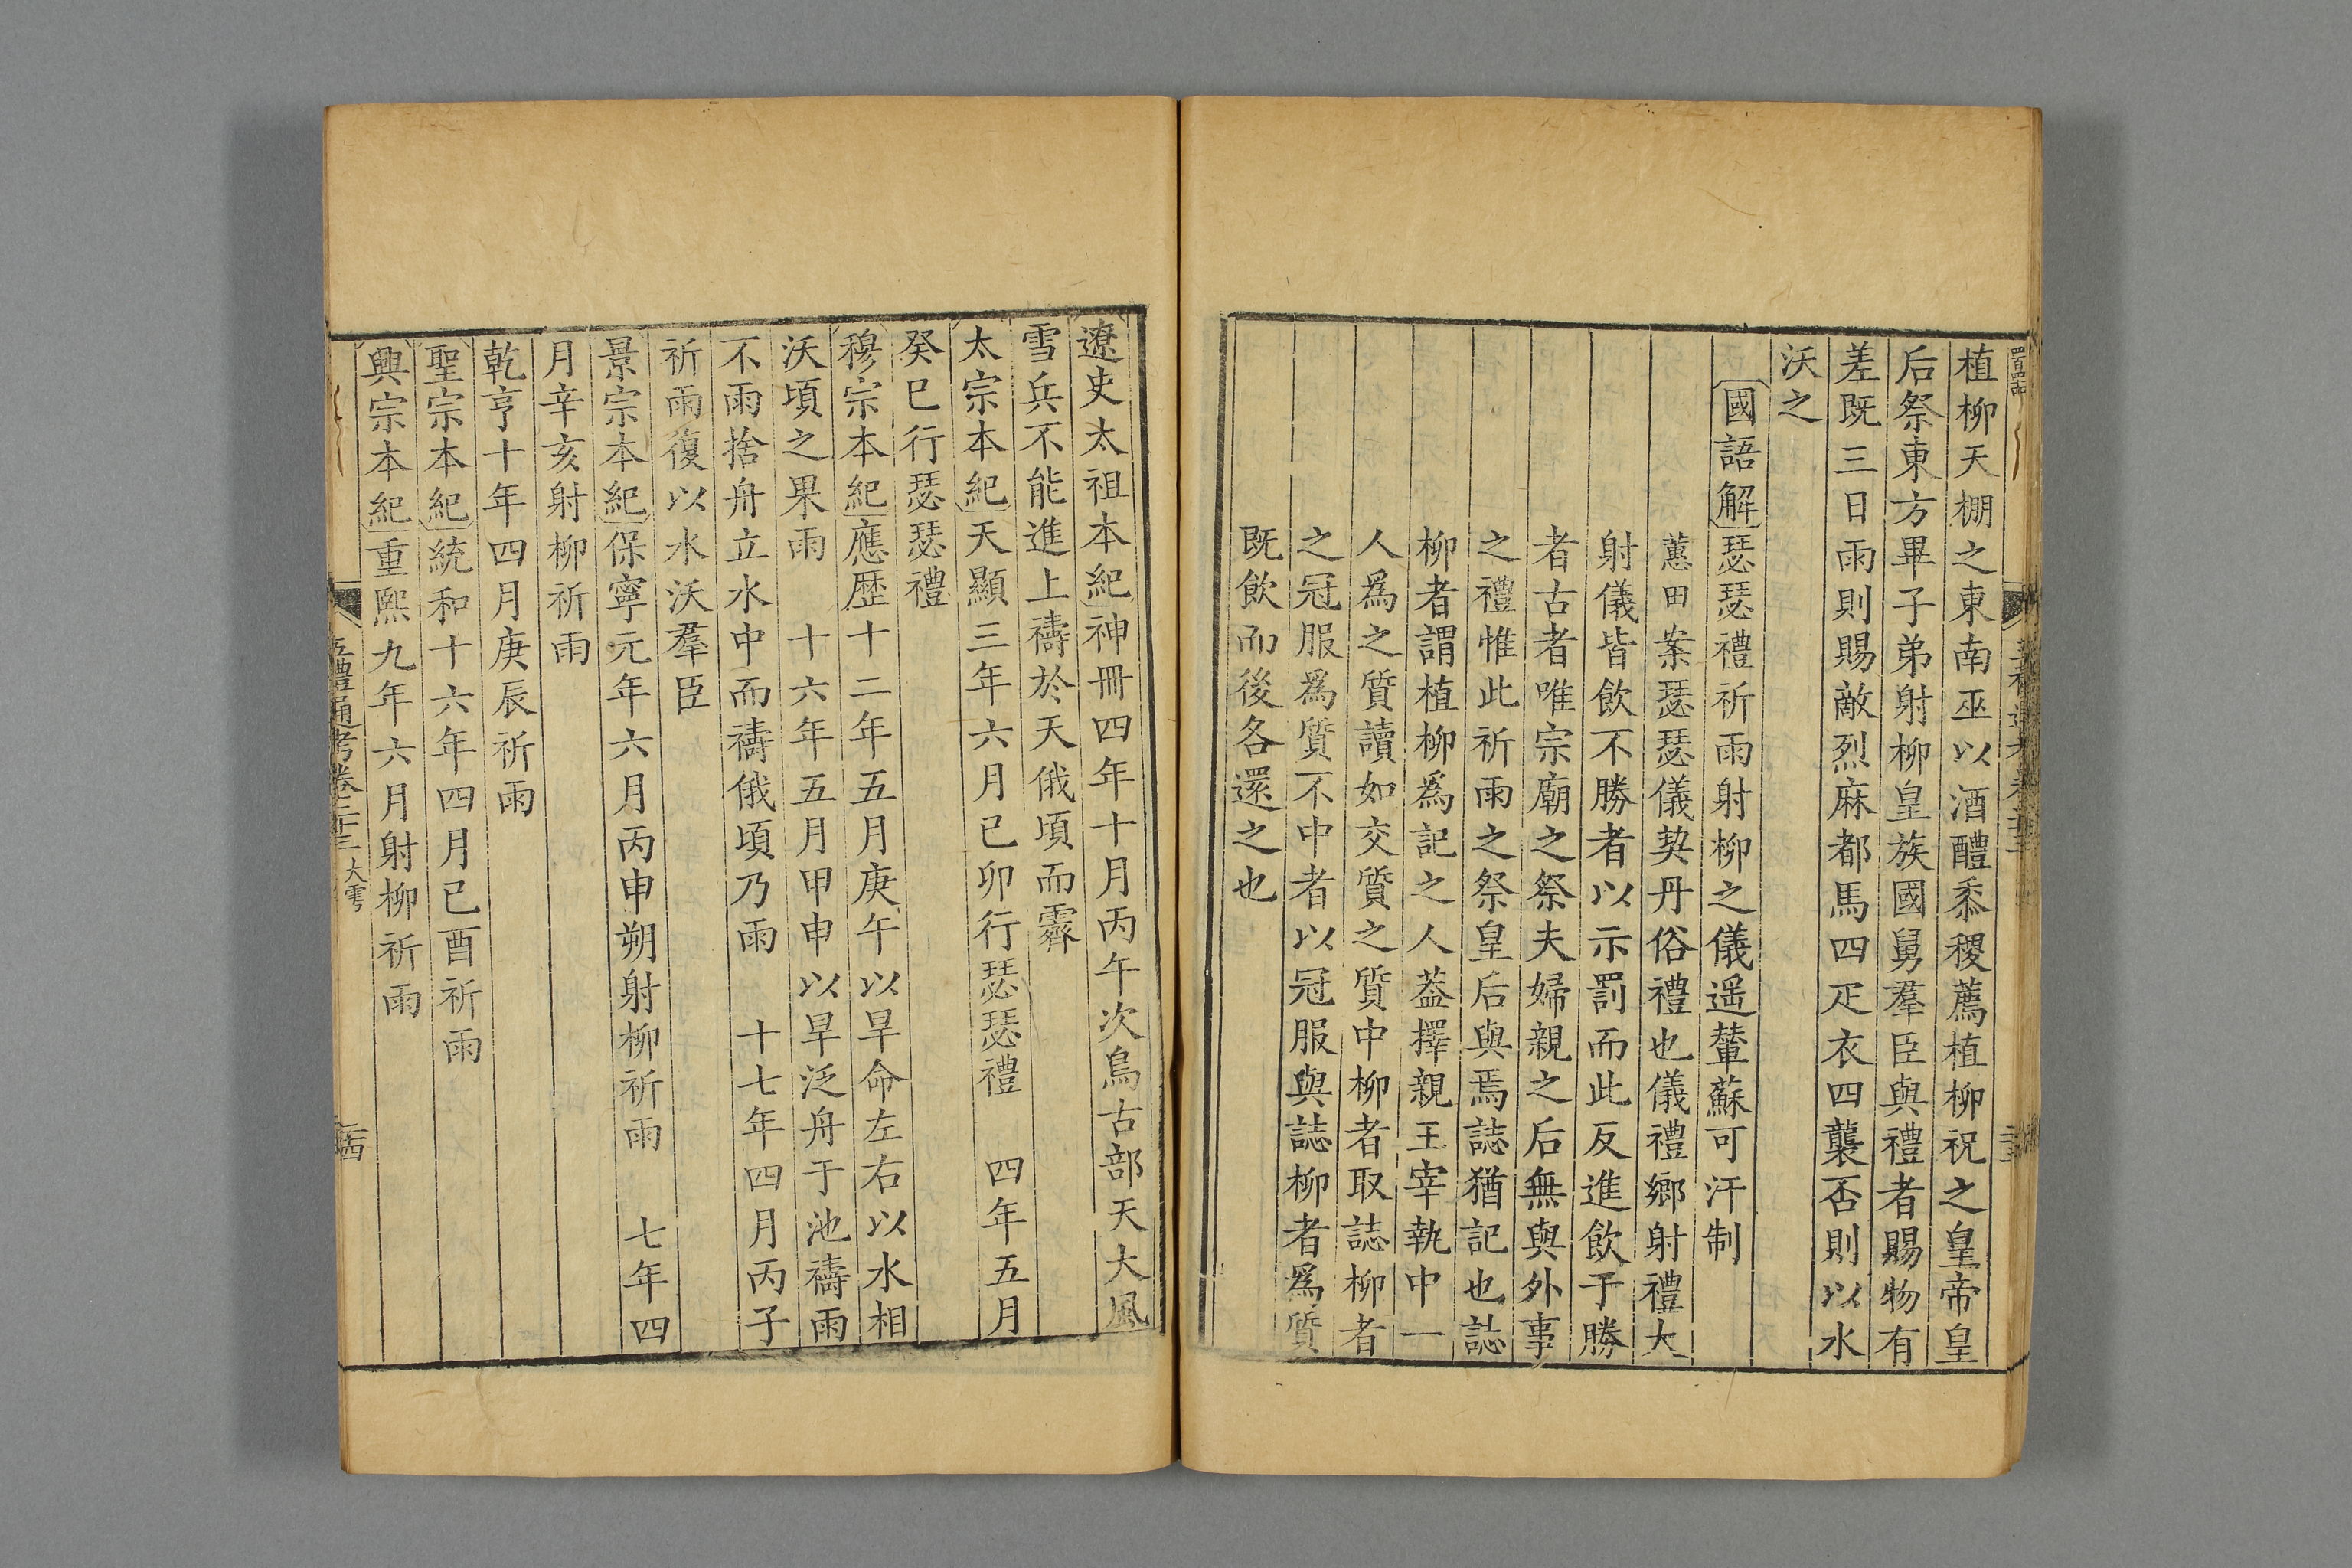 植柳天棚之東南巫以酒醴黍稷薦植柳祝之皇帝皇
后祭東方畢子弟射柳皇族國舅羣臣與禮者賜物有
差既三日雨則賜敵烈麻都馬四疋衣四襲否則以水
沃之
國語解瑟瑟禮祈雨射柳之儀遥輦蘇可汗制
蕙田案瑟瑟儀契丹俗禮也儀禮鄉射禮大
射儀皆飲不勝者以示罰而此反進飲于勝
者古者唯宗廟之祭夫婦親之后無與外事
之禮惟此祈雨之祭皇后與焉誌猶記也誌
柳者謂植柳爲記之人葢擇親王宰執中一
人爲之質讀如交質之質中柳者取誌柳者
之冠服爲質不中者以冠服與誌柳者爲質
既飲而後各還之也
遼史太祖本紀神冊四年十月丙午次烏古部天大風
雪兵不能進上禱於天俄頃而霽
太宗本紀天顯三年六月已卯行瑟瑟禮　四年五月
癸巳行瑟瑟禮
穆宗本紀應歷十二年五月庚午以旱命左右以水相
沃頃之果雨　十六年五月甲申以旱泛舟于池禱雨
不雨捨舟立水中而禱俄頃乃雨　十七年四月丙子
祈雨復以水沃羣臣
景宗本紀保寧元年六月丙申朔射柳祈雨　七年四
月辛亥射柳祈雨
乾亨十年四月庚辰祈雨
聖宗本紀統和十六年四月已酉祈雨
興宗本紀重熙九年六月射柳祈雨
五禮通考卷二十三　大雩